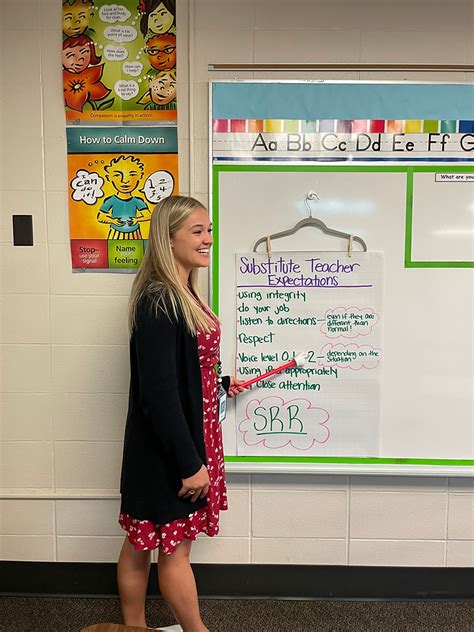 Look at her
face and body
for clues.
What is
his point
of view?
How does
she feel?
How can
I help?
What is a
kind thing
to say?
Compassion is empathy in action!
How to Calm Down
I
can do
it!
1
2
3
4
5
Stop—
use your
signal
Name
your
feeling
Aa Bb Cc Dd Ee Ff G
What are you
Substitute Teacher
Expectations
using integrity
do your job
listen to directions
even if they are
different than
normal!
Respect
Voice level 0
2
depending on the
situation
using
appropriately
Close attention
SRR